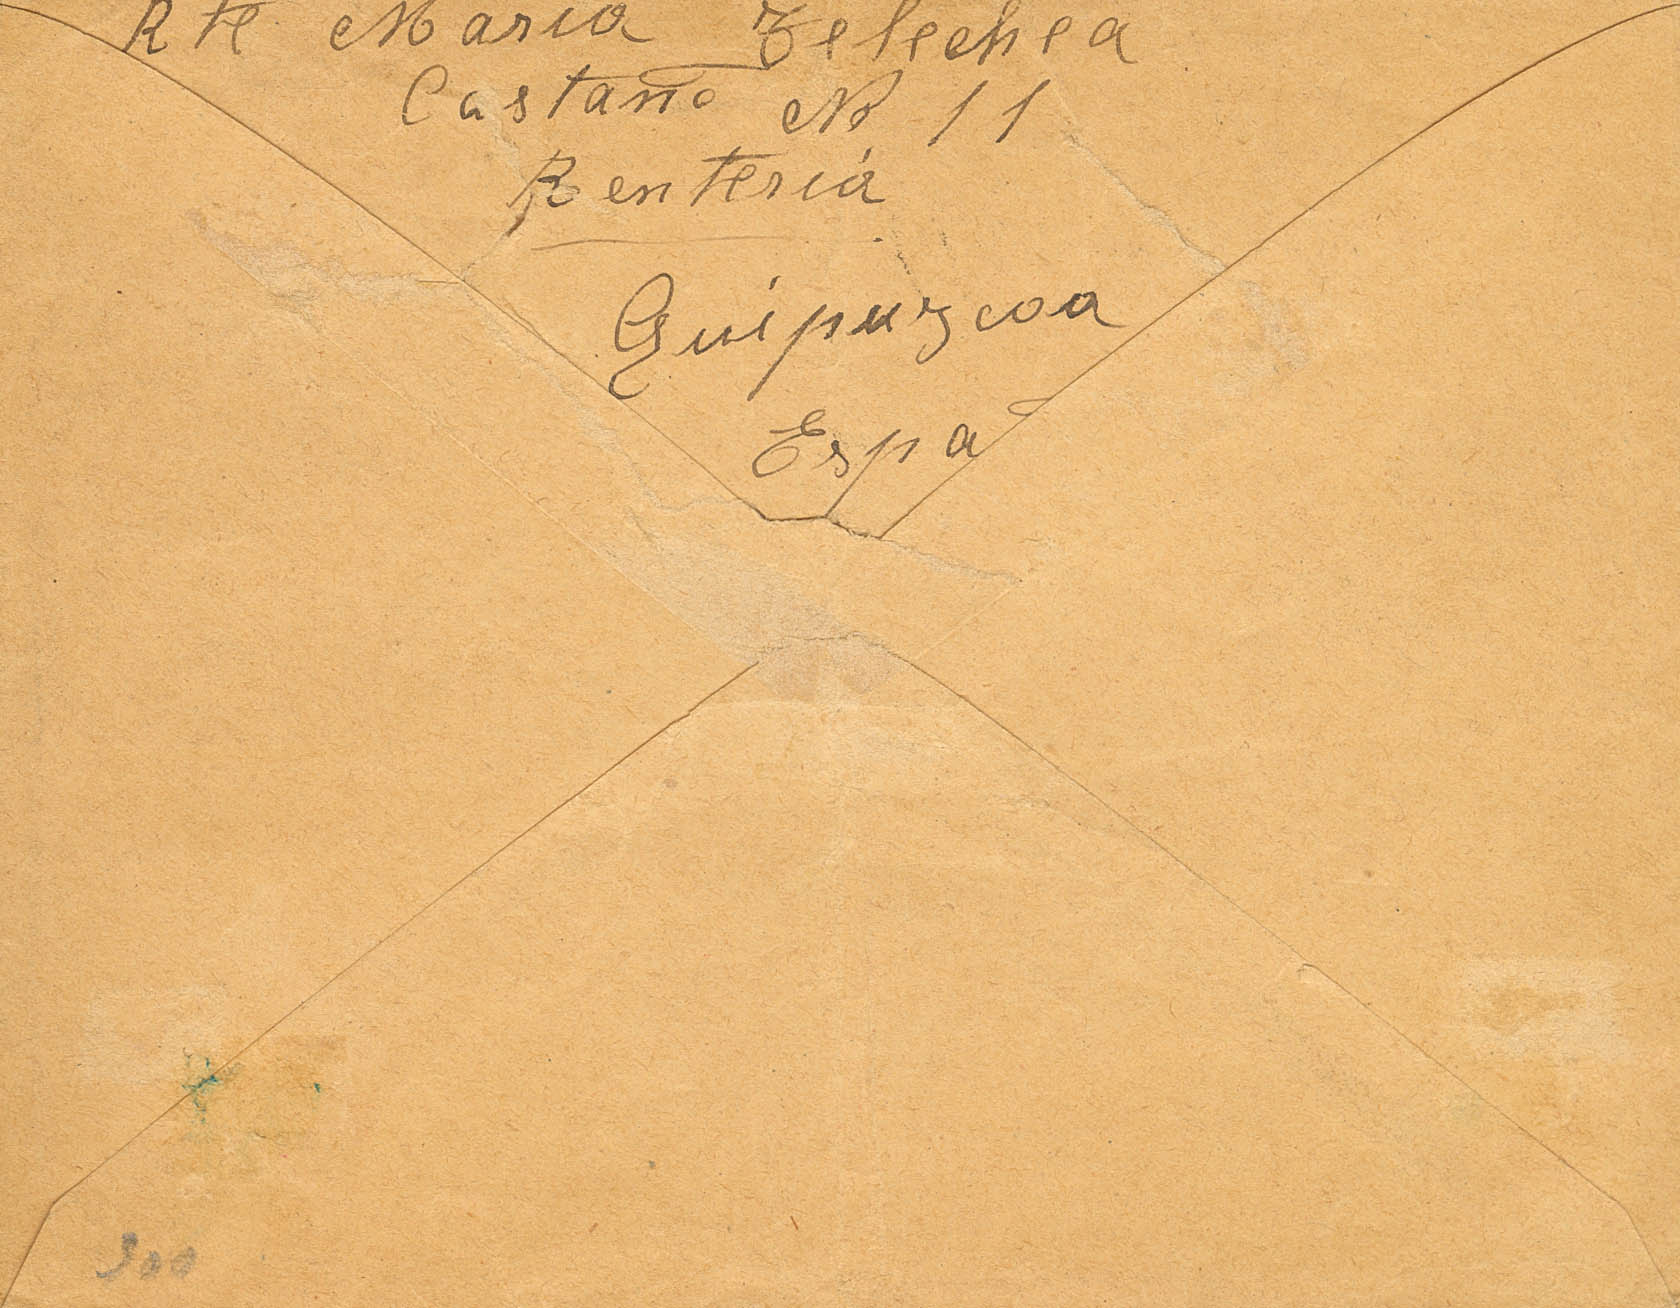 Rte Maria Telechea
Castaño Nº 11
Rentería
Guipuzcoa
Españ
300